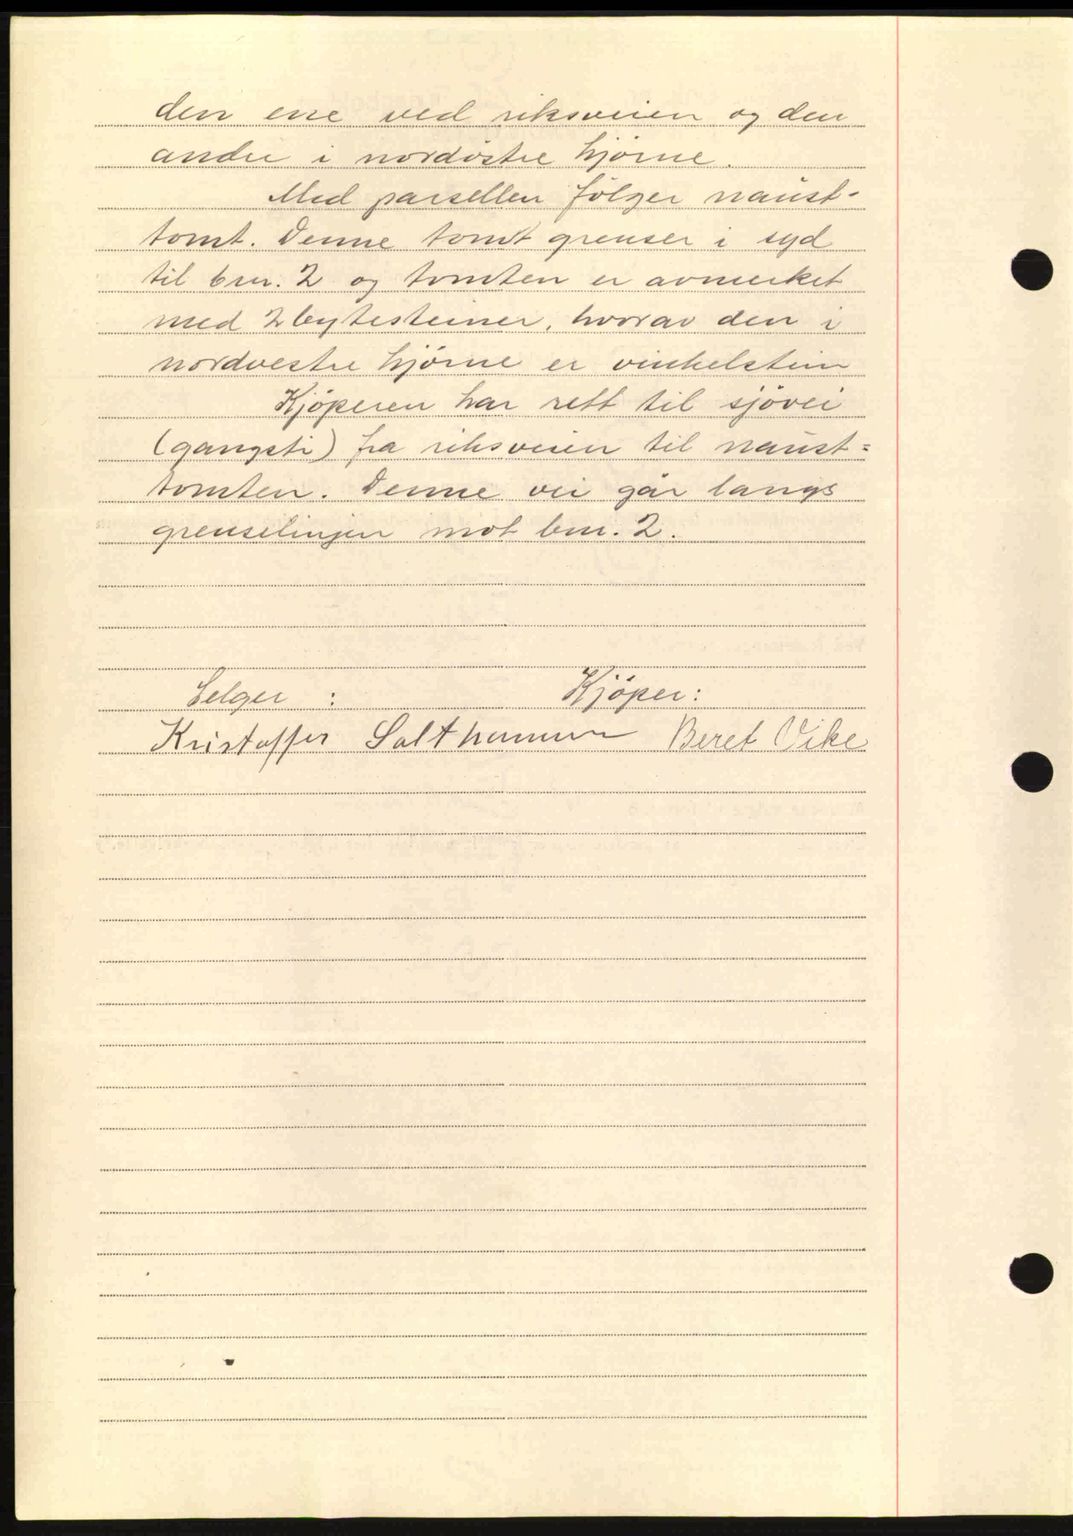 den ene ved riksveien og den
andre i nordöstre hjørne.
Med parsellen följer naust-
tomt. Denne tomt grenser i syd
til bnr. 2 og tomten er avmerket
med 2 bytesteiner, hvorav den i
nordvestre hjørne er vinkelstein
Kjöperen har rett til sjövei
(gangsti) fra riksveien til naust=
tomten. Denne vei går langs
grenselinjen mot bnr. 2.
Selger : Kjöper:
Kristoffer Salthammer Beret Vike